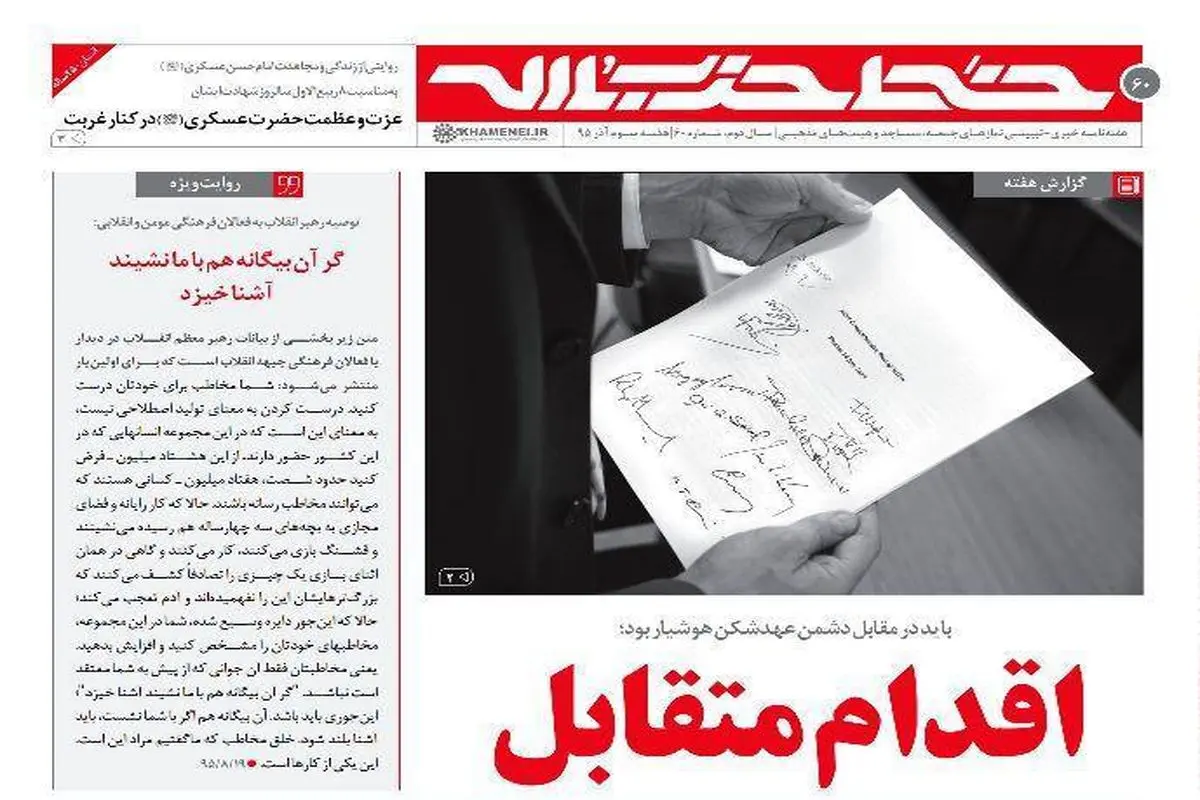 خط حزب‌الله
۶۰
هفته‌نامه خبری-تبیینی نمازهای جمعه، مساجد و هیئت‌های مذهبی | سال دوم، شماره ۶۰ | هفته سوم آذر ۹۵
KHAMENEI.IR
روایتی از زندگی و مجاهدت امام حسن عسکری
به مناسبت ۸ ربیع‌الاول سالروز شهادت ایشان
عزت و عظمت حضرت عسکری در کنار غربت
۳
گزارش هفته
۲
باید در مقابل دشمن عهدشکن هوشیار بود؛
اقدام متقابل
روایت ویژه
توصیه رهبر انقلاب به فعالان فرهنگی مومن و انقلابی:
گر آن بیگانه هم با ما نشیند
آشنا خیزد
متن زیر بخشی از بیانات رهبر معظم انقلاب در دیدار
با فعالان فرهنگی جبهه انقلاب است که برای اولین‌بار
منتشر می‌شود: شما مخاطب برای خودتان درست
کنید. درست کردن به معنای تولید اصطلاحی نیست،
به معنای این است که در این مجموعه انسانهایی که در
این کشور حضور دارند، از این هشتاد میلیون ـ فرض
کنید حدود شصت، هفتاد میلیون ـ کسانی هستند که
می‌توانند مخاطب رسانه باشند. حالا که کار رایانه و فضای
مجازی به بچه‌های سه چهارساله هم رسیده می‌نشینند
و قشنگ بازی می‌کنند، کار می‌کنند و گاهی در همان
اثنای بازی یک چیزی را تصادفاً کشف می‌کنند که
بزرگ‌ترهایشان این را نفهمیده‌اند و آدم تعجب می‌کند؛
حالا که این‌جور دایره وسیع شده، شما در این مجموعه،
مخاطبهای خودتان را مشخص کنید و افزایش بدهید.
یعنی مخاطبتان فقط آن جوانی که از پیش به شما معتقد
است نباشد. "گر آن بیگانه هم با ما نشیند آشنا خیزد"؛
این‌جوری باید باشد. آن بیگانه هم اگر با شما نشست، باید
آشنا بلند شود. خلق مخاطب که ما گفتیم مراد این است.
این یکی از کارها است. ● ۹۵/۸/۱۹